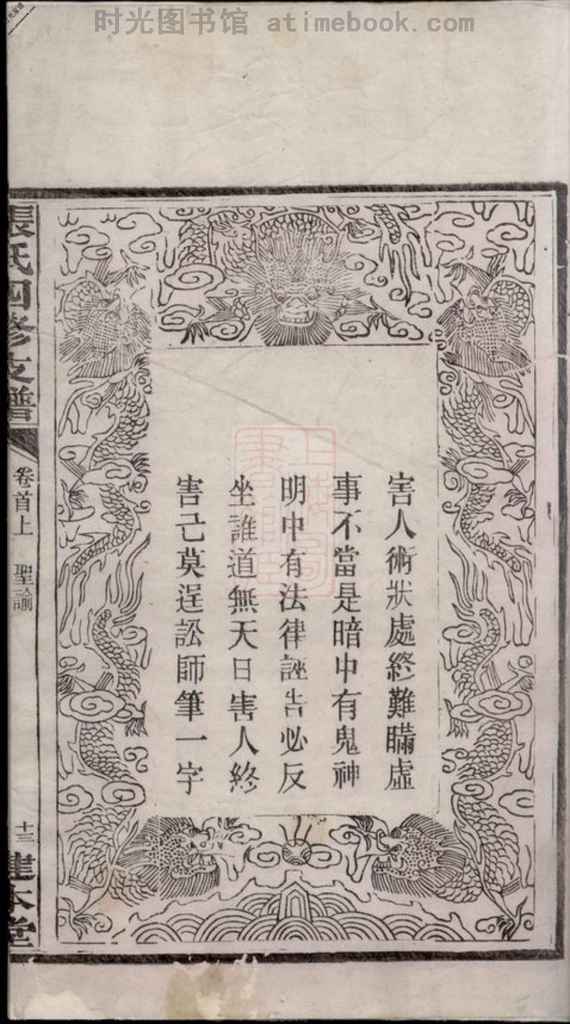 时光图书馆 atimebook.com
害人術狀處終難瞞虛
事不當是暗中有鬼神
明中有法律誣告必反
坐誰道無天日害人終
害己莫逞訟師筆一字
張氏四修支譜
卷首上 聖諭
十三
建本堂